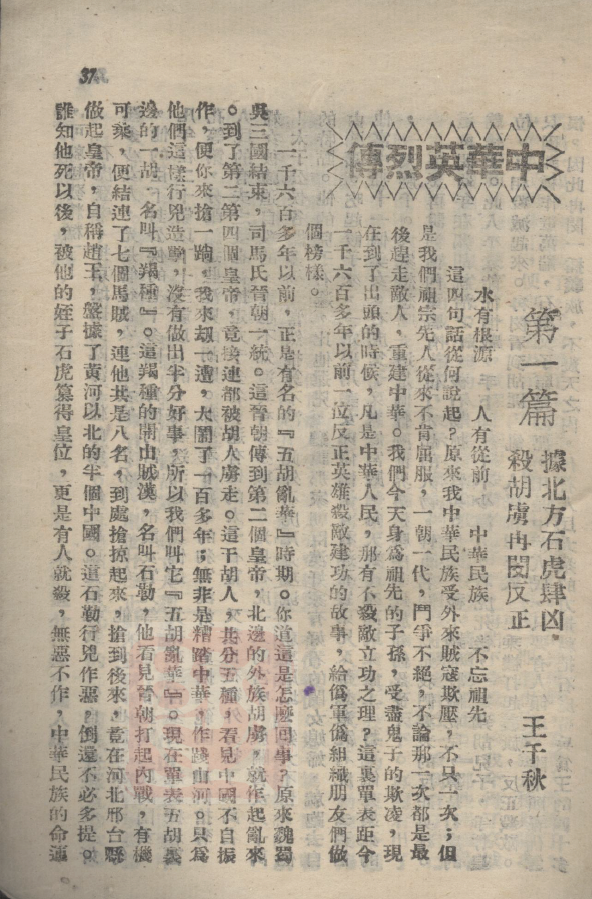 37
中華英烈傳
第一篇
據北方石虎肆凶，
殺胡虜冉閔反正
王千秋
水有根源　人有從前　中華民族　不忘祖先
這四句話從何說起？原來我中華民族受外來賊寇欺壓，不只一次；但
是我們祖宗先人從來不肯屈服，一朝一代，鬥爭不絕，不論那一次都是最
後趕走敵人，重建中華。我們今天身為祖先的子孫，受盡鬼子的欺凌，現
在到了出頭的時候，凡是中華人民，那有不殺敵立功之理？這裏單表距今
一千六百多年以前一位反正英雄殺敵建功的故事，給僞軍僞組織朋友們做
個榜樣。
一千六百多年以前，正是有名的『五胡亂華』時期。你道這是怎麼回事？原來魏蜀
吳三國結束，司馬氏晉朝一統。這晉朝傳到第二個皇帝，北邊的外族胡虜，就作起亂來
。到了第三第四個皇帝，竟接連都被胡人虜走。這干胡人，共分五種，看見中國不自振
作，便你來搶一蹦，我來刼一遭，大鬧了一百多年；無非是糟踏中華，作踐山河。只爲
他們這樣行兇造孽，沒有做出半分好事，所以我們叫它『五胡亂華』。現在單表五胡裏
邊的一胡，名叫『羯種』。這羯種的開山賊漢，名叫石勒，他看見晉朝打起內戰，有機
可乘，便結連了七個馬賊，連他共是八名，到處搶掠起來，搶到後來，竟在河北邢台縣
做起皇帝，自稱趙王，盤據了黃河以北的半個中國。這石勒行兇作惡，倒還不必多提。
誰知他死以後，被他的姪子石虎篡得皇位，更是有人就殺，無惡不作，中華民族的命運